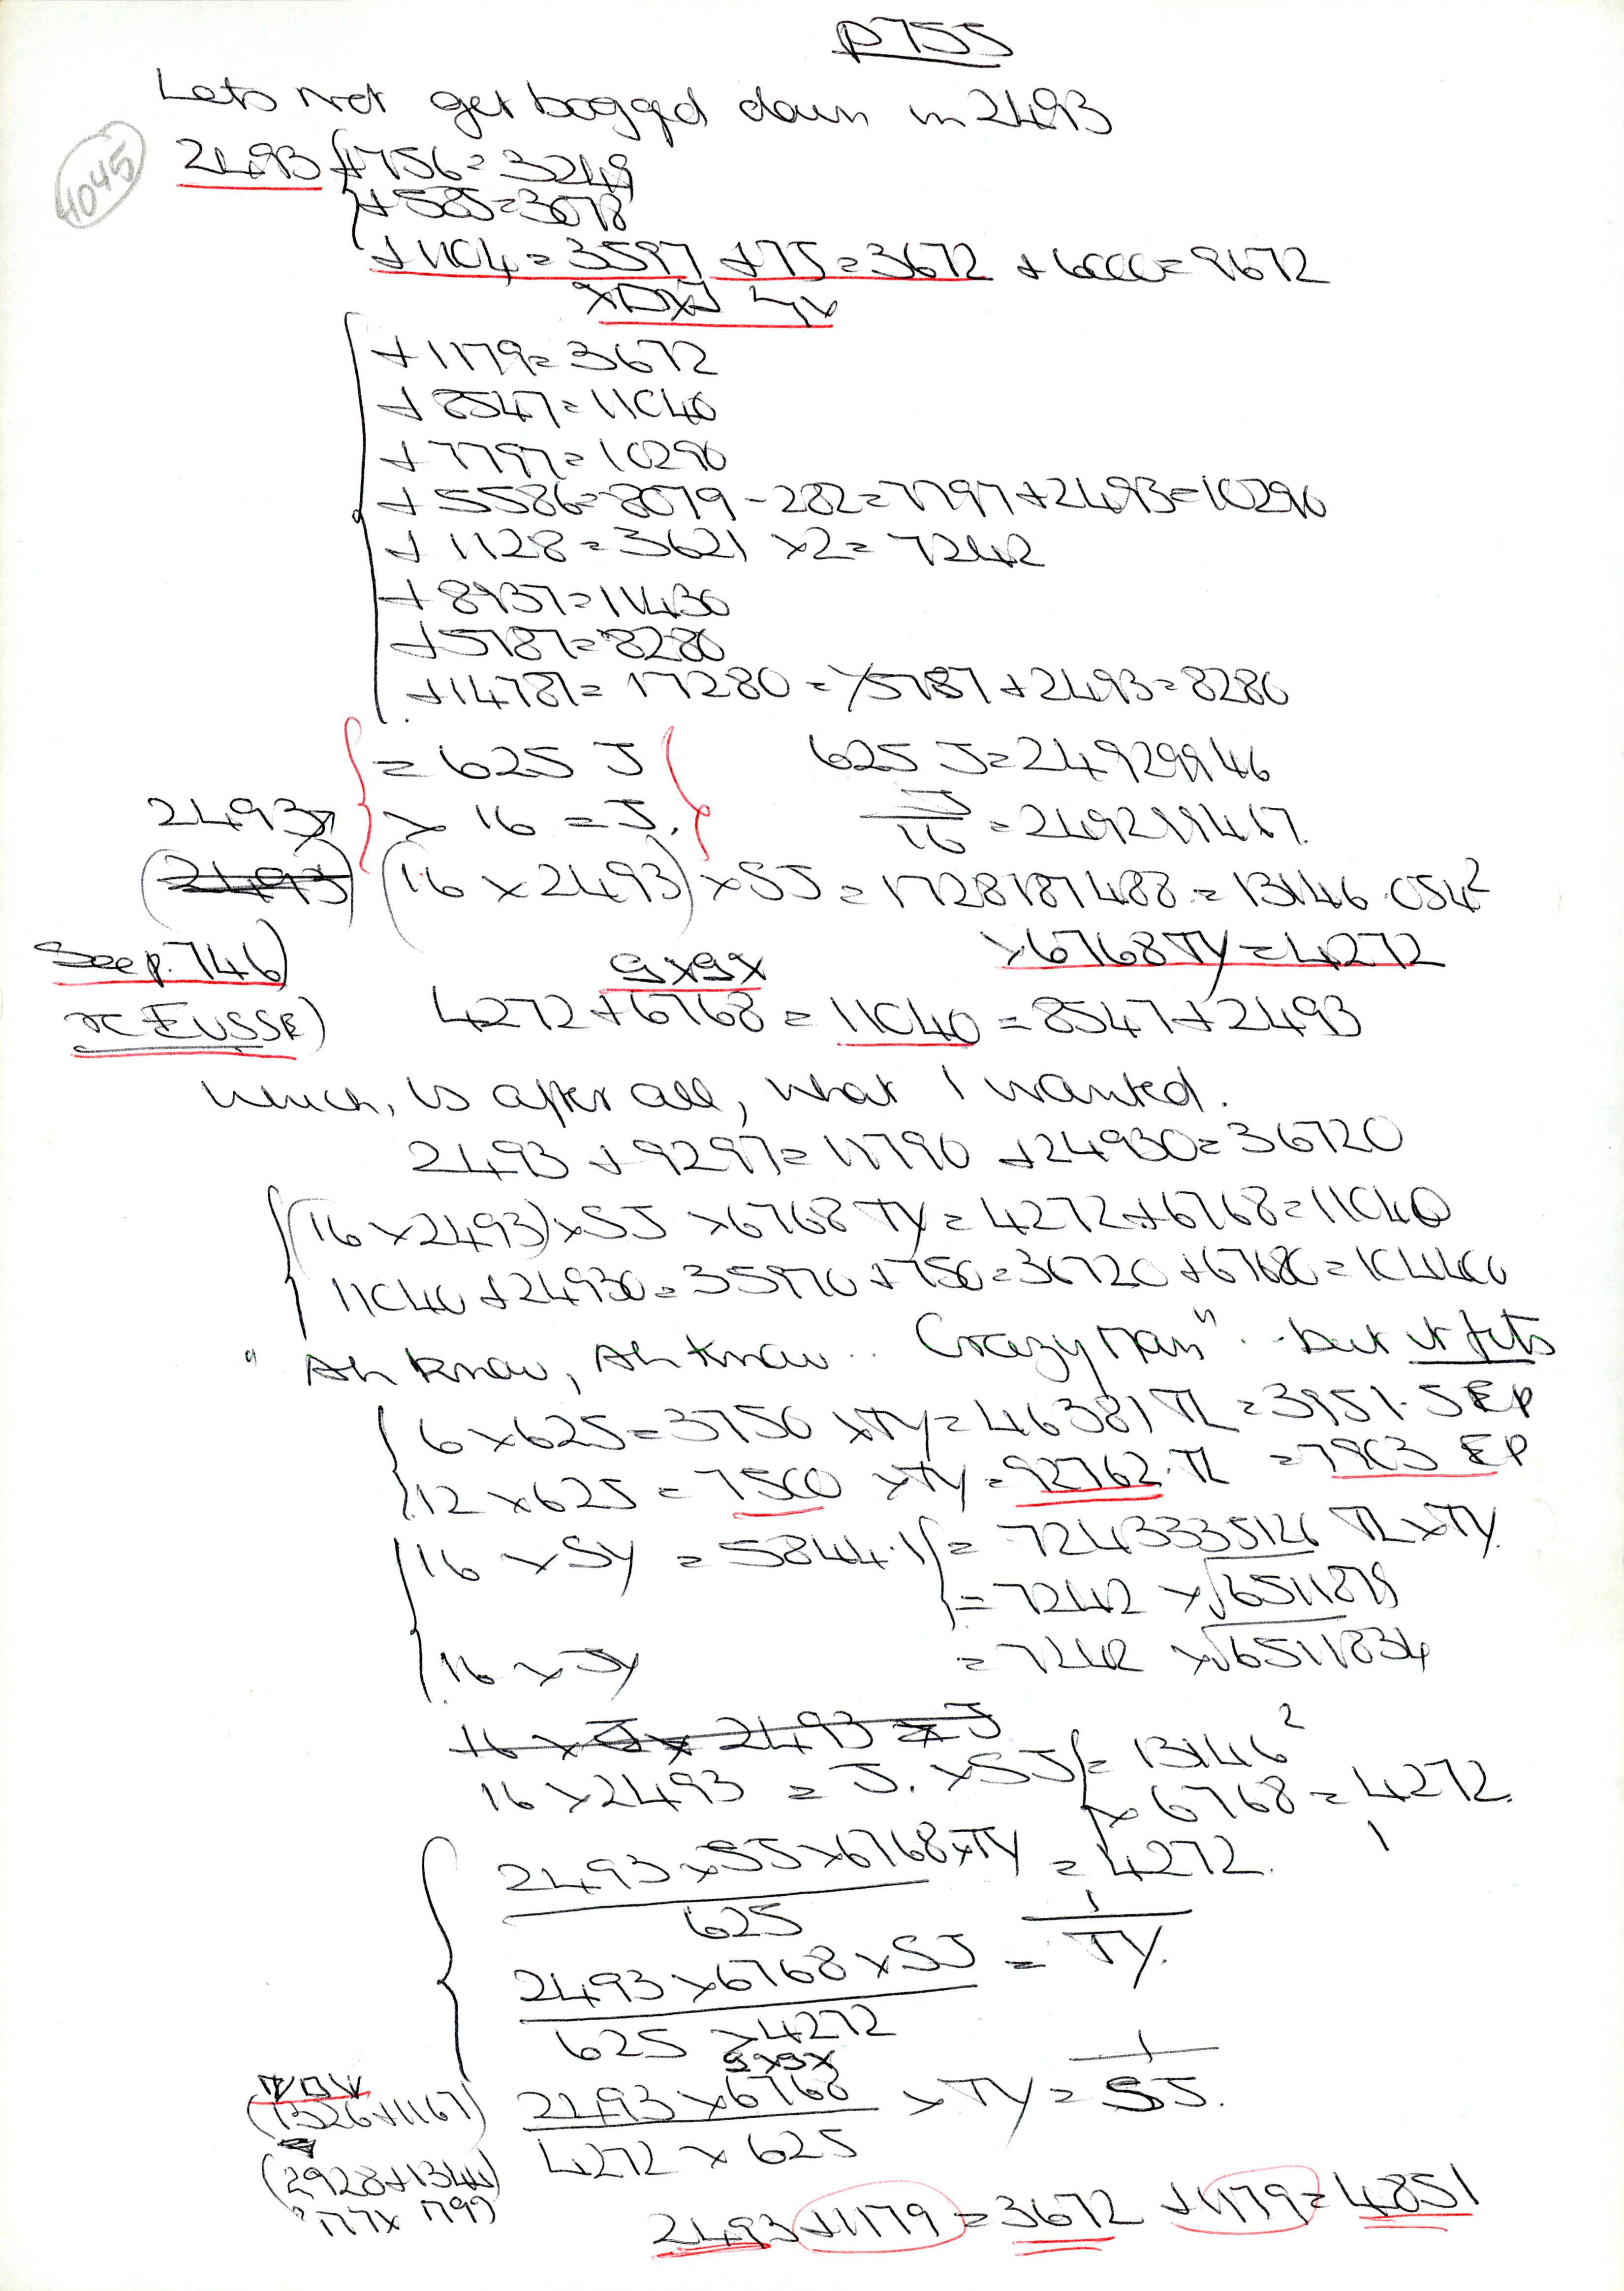 p755
Lets not get boggd down in 2493
4045
2493 +756=3249
+585=3078
+1104=3597 +75=3672 +6000=9672
+1179=3672
+8547=11040
+7797=10290
+5586=8079-282=7797+2493=10290
+1128=3621 ×2=7242
+8937=11430
+5787=8280
+14787=17280 = 5787+2493=8280
=625 J 625 J=24929946
2493 × 16 = J. J/16 =249299467.
(16×2493)×SJ=1728187488=13146.054²
See p.746) ×6768TY=4272
4272+6768=11040=8547+2493
Which, is after all, what I wanted.
2493+9297=11790+24930=36720
(16×2493)×SJ×6768TY=4272+6768=11040
11040+24930=35970+750=36720+67680=104400
"Ah know, Ah know.. Crazy Man".. but it fits
6×625=3750 ×TY=46381 TL=3951.5EP
12×625=7500 ×TY=92762.TL =7903 EP
16×SY =5844.1 =7243335126 TL×TY.
=7242 ×√6511879
16×JY =7242 ×√6511834
16×2493 = J. ×SJ =13146²
×6768=4272.
2493×SJ×6768×TY/625 =4272.
2493×6768×SJ/625×4272 = 1/TY.
(1326+1167) 2493×6768/4272×625 ×TY= 1/SJ.
(2928+1344)
2493+1179=3672 +1179=4851